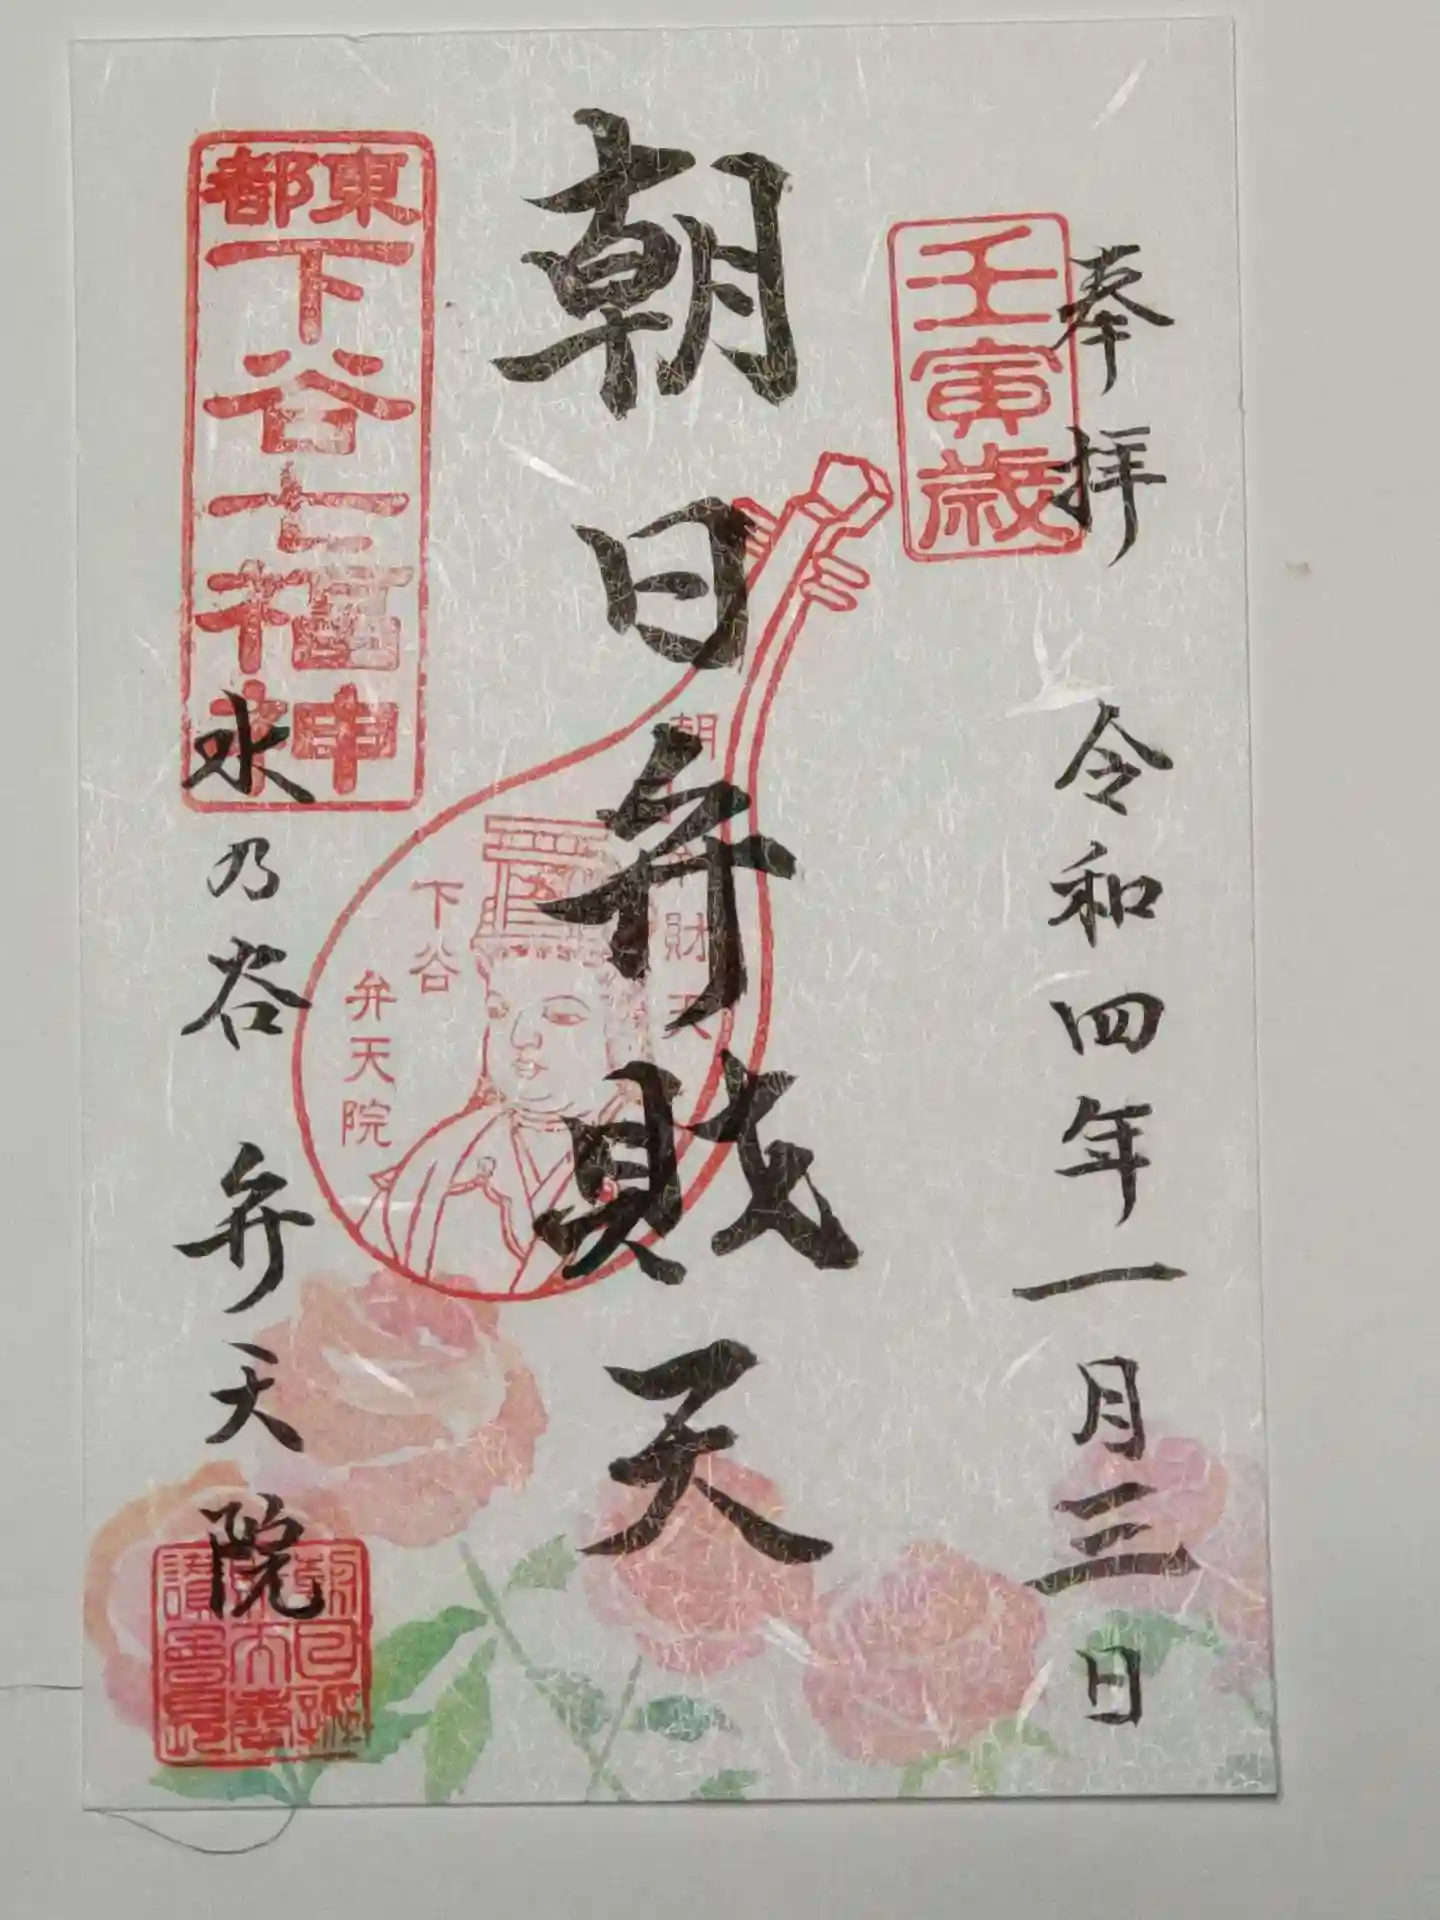 奉拝
令和四年一月三日
壬寅歳
朝日弁財天
財天
下谷
弁天院
東都
下谷七福神
水乃谷 弁天院